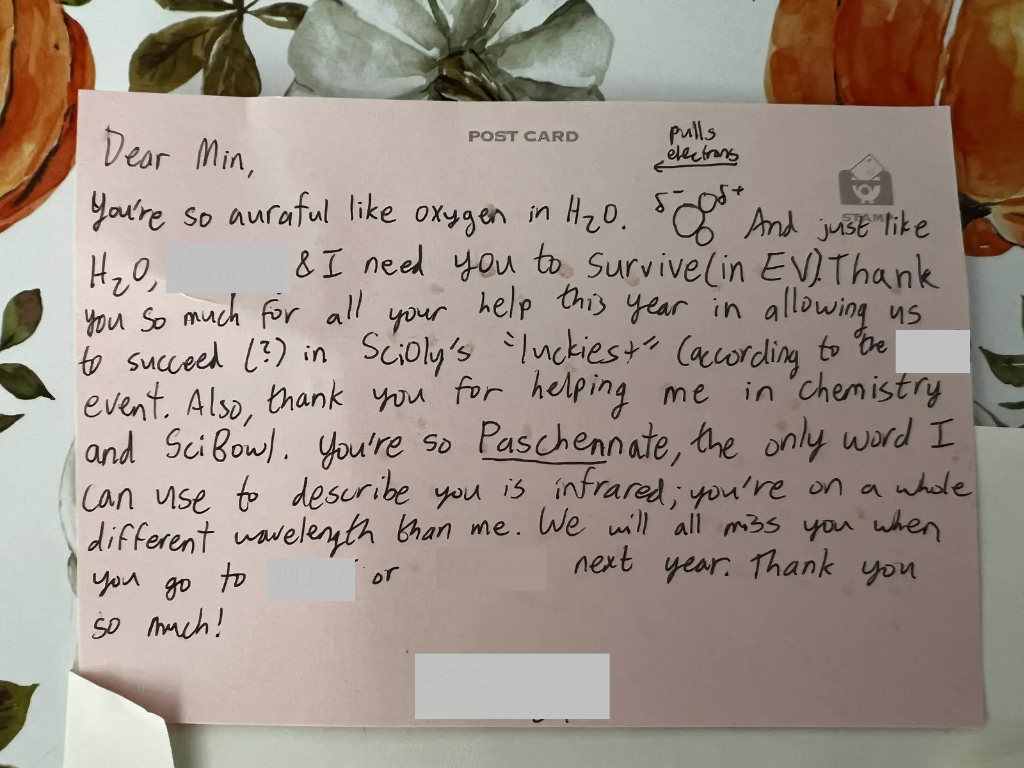 POST CARD
pulls
electrons
Dear Min,
STAMP
You're so auraful like oxygen in H₂O. δ⁻ δ⁺ And just like
H₂O, & I need you to survive (in EV). Thank
you so much for all your help this year in allowing us
to succeed (?) in SciOly's "luckiest" (according to the
event. Also, thank you for helping me in chemistry
and SciBowl. You're so Paschennate, the only word I
can use to describe you is infrared; you're on a whole
different wavelength than me. We will all m3s you when
you go to or next year. Thank you
so much!